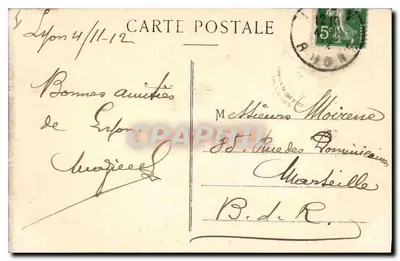 Lyon 4/11-12
CARTE POSTALE
5c
RHON
Bonnes amitiés
de Lyon
Messieurs Moirene
35. Rue des Dominicaines
Marseille
B. d. R.
CPARAMA